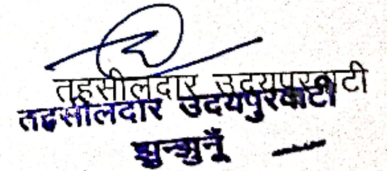 तहसीलदार उदयपुरवाटी
तहसीलदार उदयपुरवाटी
झुन्झुनूँ